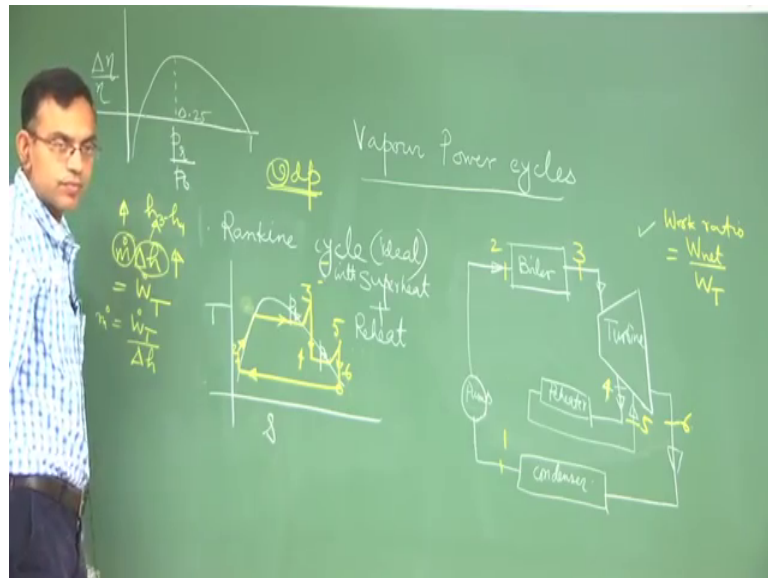 Δη
η
0.25
1
p_r
p_b
Vapour Power cycles
v dp
h3-h4
ṁ Δh
= Ẇ_T
ṁ = Ẇ_T
Δh
1. Rankine cycle (ideal)
with Superheat
+
Reheat
T
3
5
4
6
S
2
Boiler
3
Turbine
Pump
Reheater
4
5
6
1
Condenser
✓ Work ratio
= Wnet
W_T